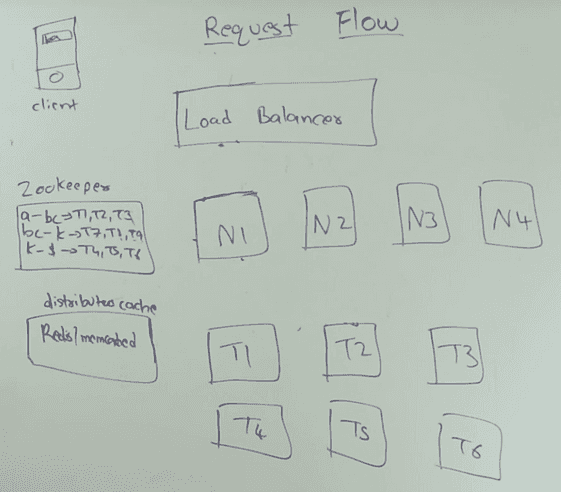 Request Flow
client
Load Balancer
Zookeeper
a-bc→T1,T2,T3
bc-k→T7,T8,T9
k-$→T4,T5,T6
N1
N2
N3
N4
distributed cache
Redis/memcached
T1
T2
T3
T4
T5
T6